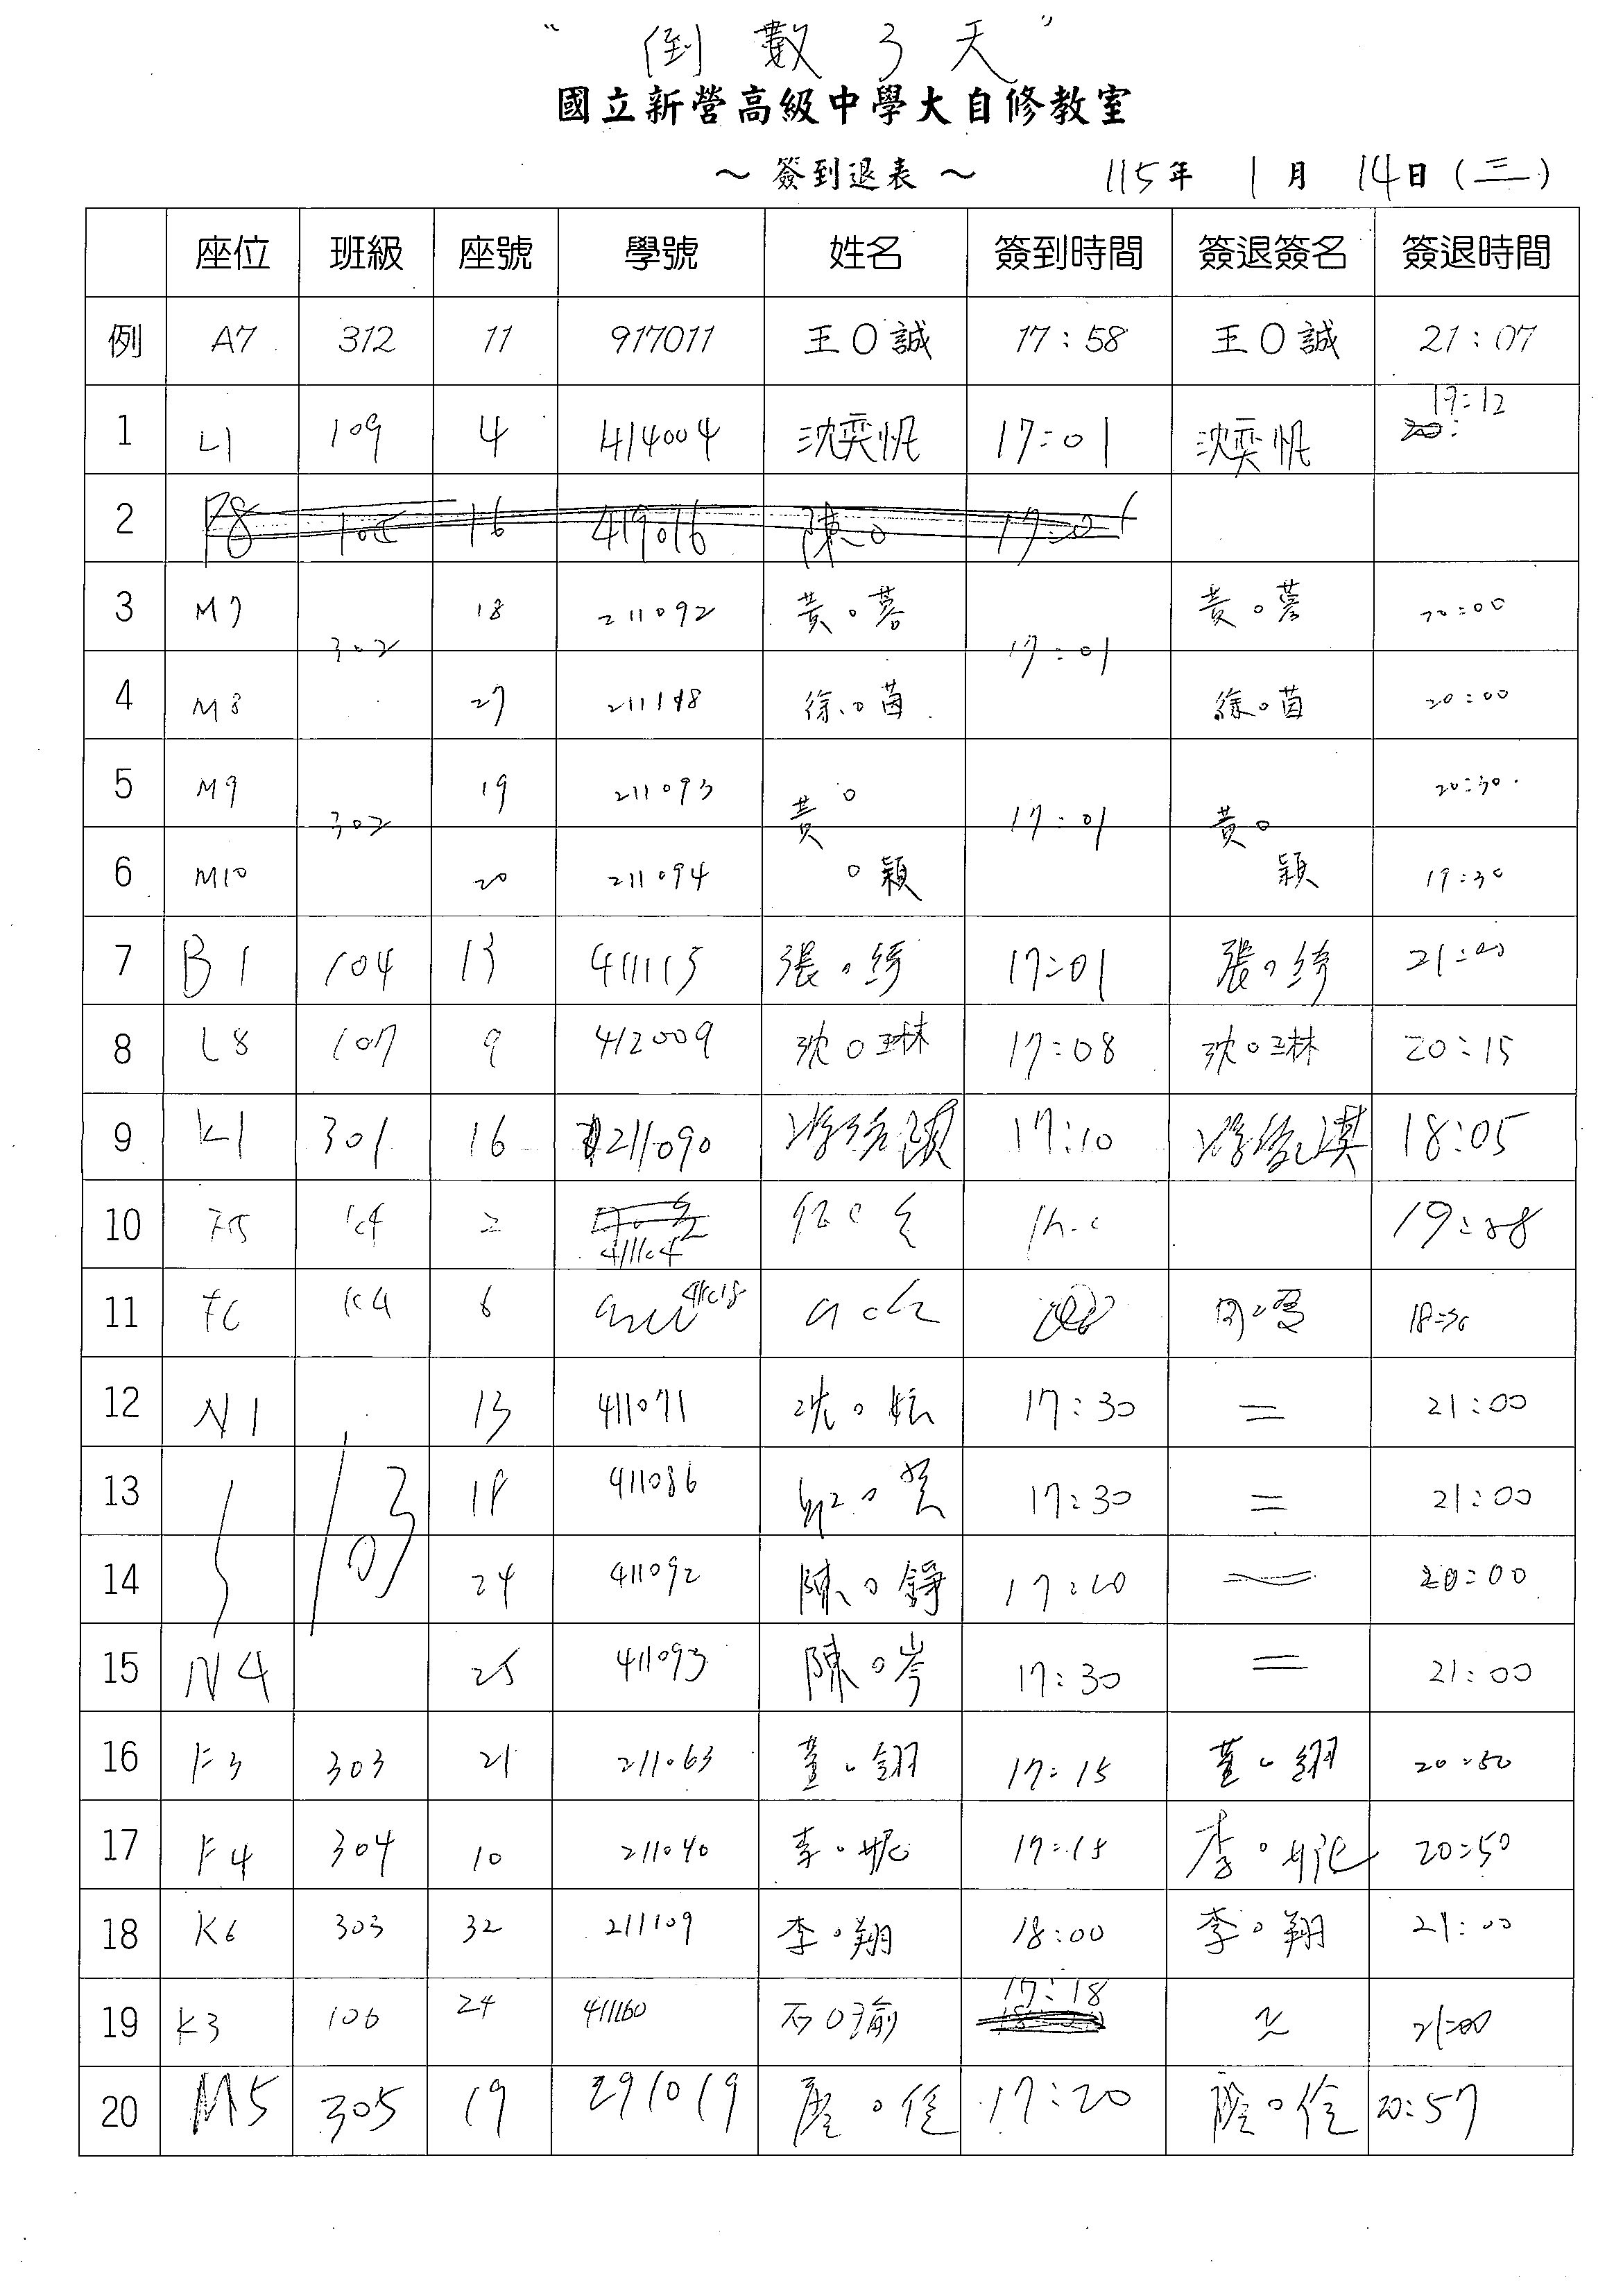 “ 倒數3天 ”
國立新營高級中學大自修教室
～ 簽到退表 ～ 115年 1月 14日(三)
座位 班級 座號 學號 姓名 簽到時間 簽退簽名 簽退時間
例 A7 312 11 917011 王O誠 17:58 王O誠 21:07
1 L1 109 4 414004 沈奕帆 17:01 沈奕帆 17:12
2 F8 16 419016 陳O 17:01
3 M7 302 18 211092 黃O蓉 17:01 黃O蓉 20:00
4 M8 27 211148 徐O茵 徐O茵 20:00
5 M9 302 19 211093 黃O 17:01 黃O 20:30
6 M10 20 211094 O穎 穎 19:30
7 B1 104 13 411115 張O綺 17:01 張O綺 21:00
8 L8 107 9 412009 沈O琳 17:08 沈O琳 20:15
9 K1 301 16 211090 17:10 18:05
10 F5 104 2
11 F6 104 6 18:30
12 N1 103 13 411071 沈O妘 17:30 = 21:00
13 411086 17:30 = 21:00
14 24 411092 陳O錚 = 20:00
15 N4 25 411093 陳O岑 17:30 = 21:00
16 F3 303 21 211063 董O翎 17:15 董O翎 20:50
17 F4 304 10 211040 李O妮 17:15 李O妮 20:50
18 K6 303 32 211109 李O翔 18:00 李O翔 21:00
19 K3 106 24 411160 石O瑜 17:18 21:00
20 M5 305 19 291019 17:20 20:57